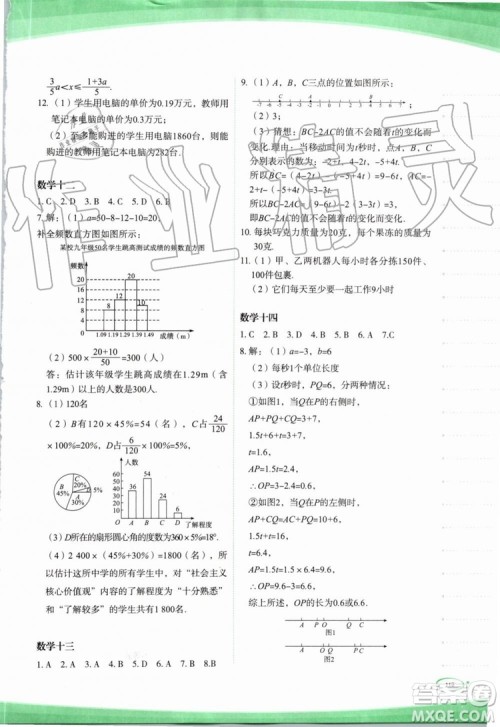 3/5 a＜x≤ (1+3a)/5.
12.（1）学生用电脑的单价为0.19万元，教师用
笔记本电脑的单价为0.3万元；
（2）至多能购进的学生用电脑1860台，则能
购进的教师用笔记本电脑为282台.
数学十二
1. C 2. D 3. A 4. B 5. D 6. A
7. 解：（1）a=50-8-12-10=20
补全频数直方图如图所示：
某校九年级50名学生跳高测试成绩的频数直方图
频数
20
16
12
8
4
20
12
10
8
1.09 1.19 1.29 1.39 1.49 成绩（m）
（2）500× (20+10)/50 =300（人）
答：估计该年级学生跳高成绩在1.29m（含
1.29m）以上的人数是300人.
8.（1）120名
（2）B有120×45%=54（名），C占 24/120
×100%=20%，D占 6/120 ×100%=5%.
人数
60
50
40
30
20
10
36
54
24
6
A B C D 了解程度
B 45%
C 20%
A 30%
（3）D所在的扇形圆心角的度数为360×5%=18°.
（4）2 400×（45%+30%）=1800（名），所
以估计这所中学的所有学生中，对“社会主义
核心价值观”内容的了解程度为“十分熟悉”
和“了解较多”的学生共有1 800名.
数学十三
1. A 2. D 3. A 4. B 5. A 6. B 7. B 8.B
9.（1）A，B，C三点的位置如图所示：
（2）3；
（3）猜想：BC-2AC的值不会随着t的变化而
变化.理由：移动t秒后，点A，B，C
BC-2AC的值不会随着t的变化而变化.
10. 每块巧克力质量为20克，每个果冻的质量为
30克.
11.（1）甲、乙两部机器人每小时各分拣150件、
100件包裹.
（2）它们每天至少要一起工作9小时
数学十四
1. C 2. B 3. D 4. A 5. A 6. A 7.C
8. 解：（1）a=-3，b=6
（2）每秒1个单位长度
（3）设t秒时，PQ=6，分两种情况：
①如图1，当Q在P的右侧时，
AP+PQ+CQ=3+7，
1.5t+6+t=3+7，
t=1.6，
AP=1.5t=2.4，
∴OP=3-2.4=0.6.
②如图2，当Q在P的左侧时，
AP+CQ=AC+PQ，
1.5t+t=10+6，
t=6.4，
AP=1.5t=9.6，
∴OP=9.6-3=6.6.
综上所述，OP的长为0.6或6.6.
图1
图2
作业精灵
答案圈
MXQE.COM